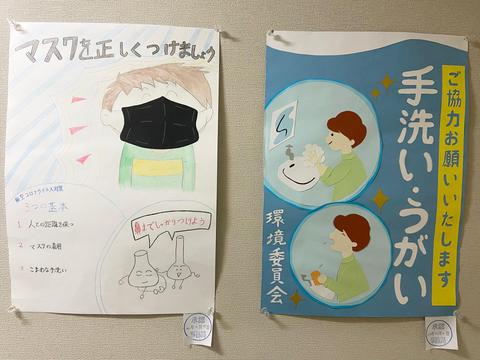 マスクを正しくつけましょう
新型コロナウイルス対策
3つの基本
1 人との距離を保つ
2 マスクの着用
3 こまめな手洗い
鼻までしっかりつけよう
承認
ご協力お願いいたします
手洗い・うがい
環境委員会
承認